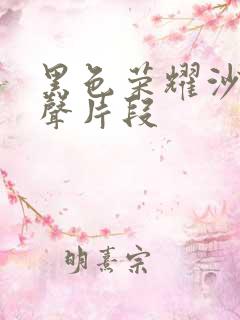 黑色荣耀沙
聲片段
明熹宗